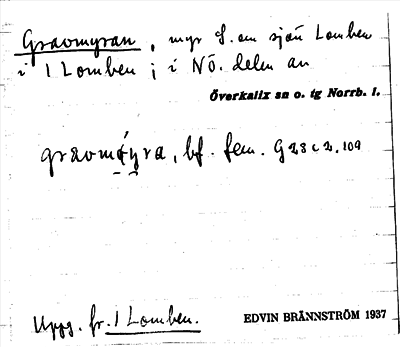 Gravmyran, myr S. om sjön Lomben
i 1 Lomben ; i NÖ. delen av
Överkalix sn o. tg Norrb. l.
gravmýra, bf. fem. G 23 c 2. 109
Uppg. fr. 1 Lomben.
EDVIN BRÄNNSTRÖM 1937